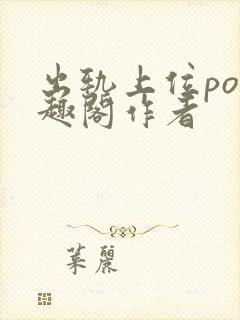 出轨上位po
趣阁作者
葉麗